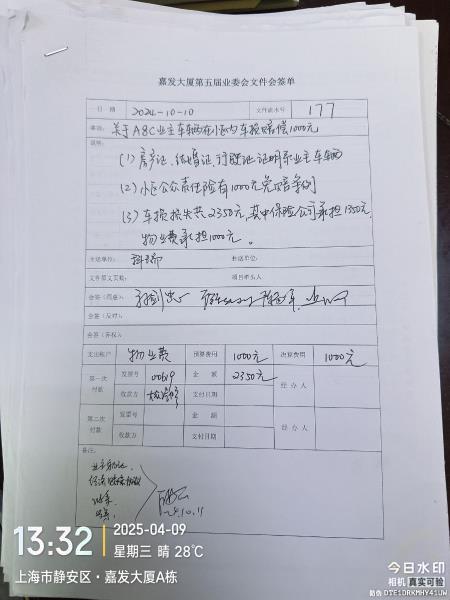 嘉发大厦第五届业委会文件会签单
日期 2024-10-10 文件流水号 177
事项: 关于A8C业主车辆在小区内车损赔偿1000元
说明:
(1) 房产证、结婚证、行驶证证明系业主车辆
(2) 小区公众责任险有1000元免赔条例
(3) 车损损失共2350元,其中保险公司承担1350元,
物业费承担1000元。
主送单位: 抄送单位:
文件原文页数: 项目牵头人
会签(同意):
会签(反对):
会签(弃权):
支出账户 物业费 预算费用 1000元 决算费用 1000元
第一次付款 发票号 00619 金额 2350元 经办人
收款方 支付日期
第二次付款 发票号 金额 经办人
收款方 支付日期
备注:
13:32 2025-04-09
星期三 晴 28℃
上海市静安区·嘉发大厦A栋
今日水印
相机 真实可验
防伪 DTE1DRKMHY41UW